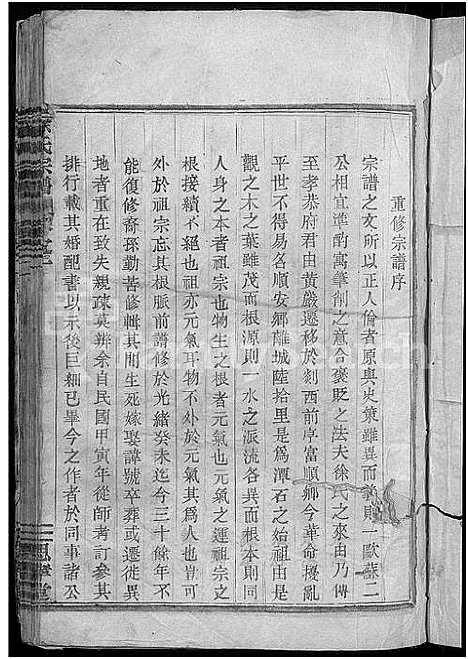 重修宗譜序
宗譜之文所以正人倫者原與史策雖異而義則一歐蘇二
公相宜準酌寓筆削之意合褒貶之法夫徐氏之來由乃傳
至孝恭府君由黃嚴遷移於剡西前岸富順鄉今革命擾亂
平世不得易名順安鄉離城陸拾里是爲潭石之始祖由是
觀之木之葉雖茂而根源則一水之派流各異而根本則同
人身之本者祖宗也物生之根者元氣也元氣之運祖宗之
根接續不絕也祖亦元氣耳物不外於元氣其爲人也豈可
外於祖宗忘其根脈前譜修於光緒癸未迄今三十餘年不
能復修裔孫勤善修輯其間生死嫁娶諱號卒葬或遷徙異
地者重在致失親疎莫辨余自民國甲寅年從師考訂入其
排行載其婚配書以示後巨細已畢今之作者於同事諸公
氏宗譜